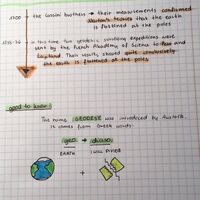 1700 → the Cassini brothers → their measurements confirmed
Newton's theories that the earth
is flattened at the poles
1735-36 → in this time two geodetic surveying expeditions were
sent by the French Academy of Science to Peru and
Lapland. Their results showed quite conclusively
the earth is flattened at the poles
good to know!
The name GEODESY was introduced by Aristotle.
It comes from Greek words.
geo → daiso
EARTH I WILL DIVIDE
+